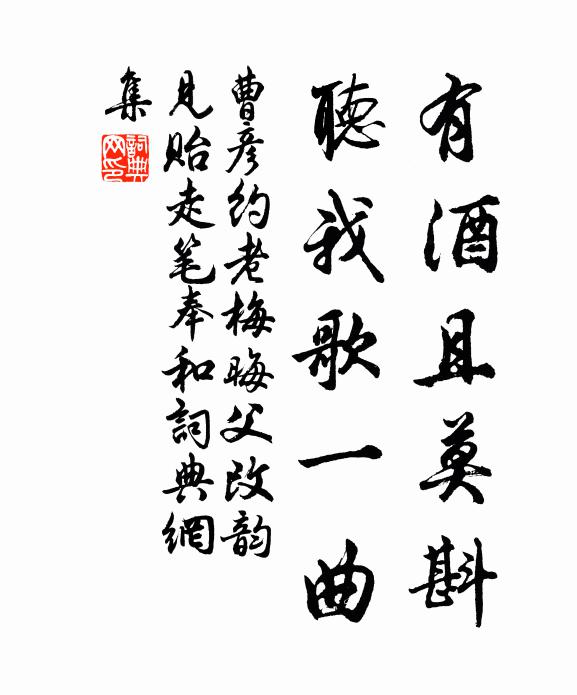 有酒且莫斟
聽我歌一曲
曹彦约老梅晦父改韵
見贻走笔奉和詞典網
集
詞典
网印